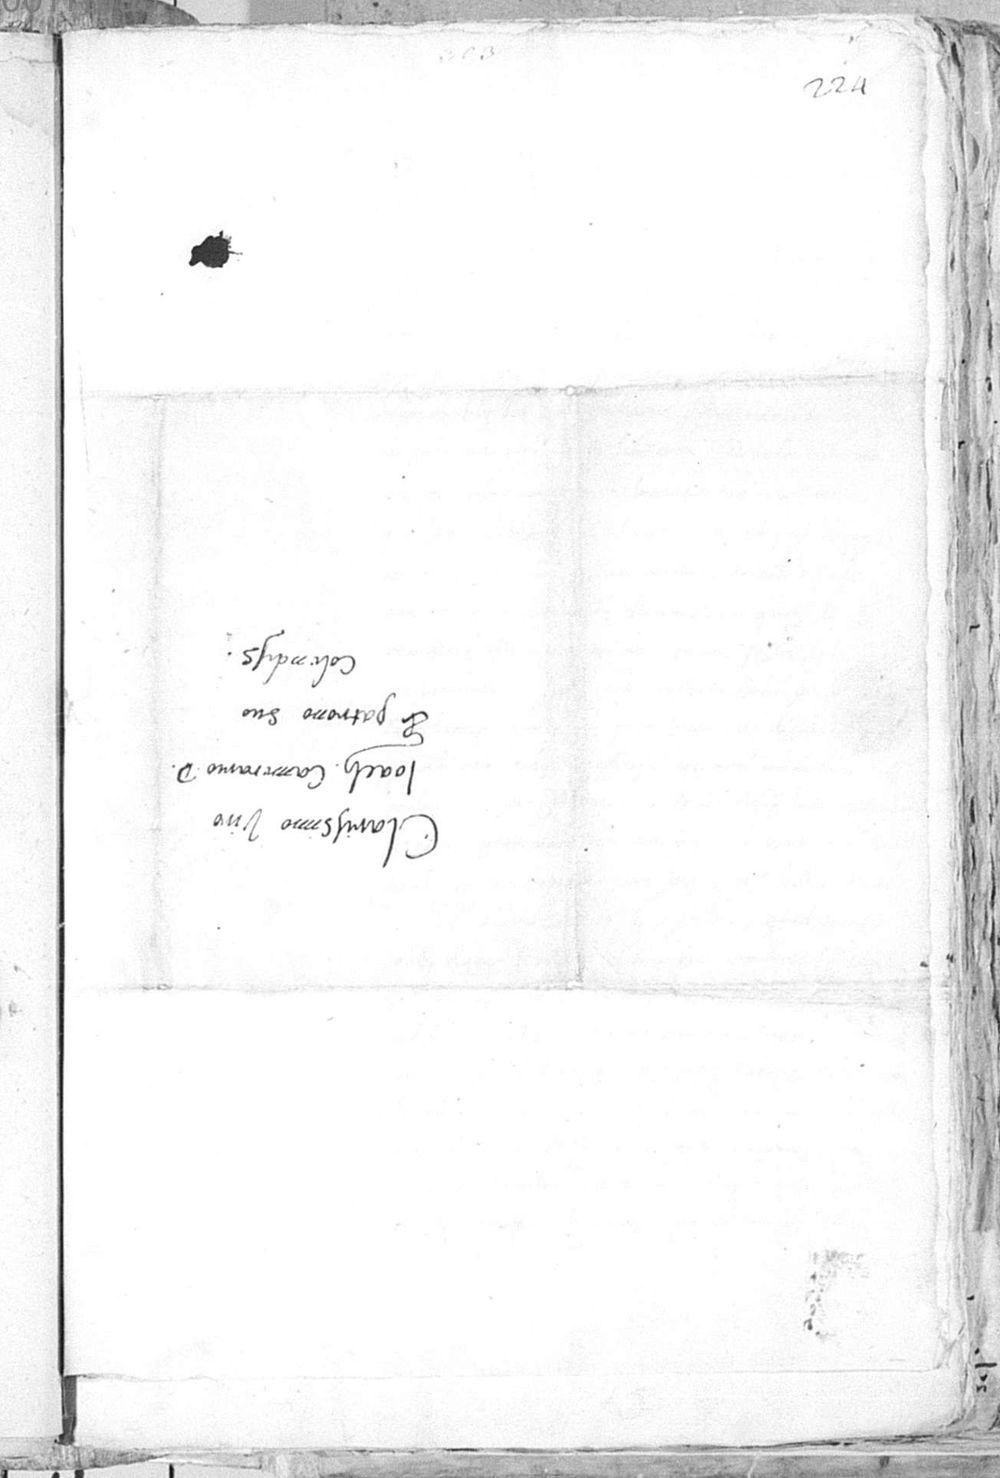 224
Clarissimo Viro
Ioach. Camerario D.
& patrono suo
Colendiss.